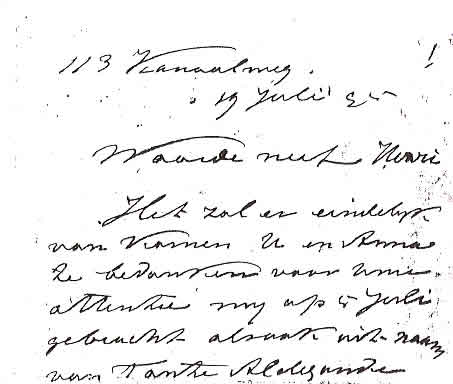 113 Kanaalweg.
19 Juli 95
Waarde neef Henri
Het zal er eindelyk
van komen U en Anna
te bedanken voor uwe
attentie my op 5 Juli
gebracht alsook uit naam
van Tante Aldegonde